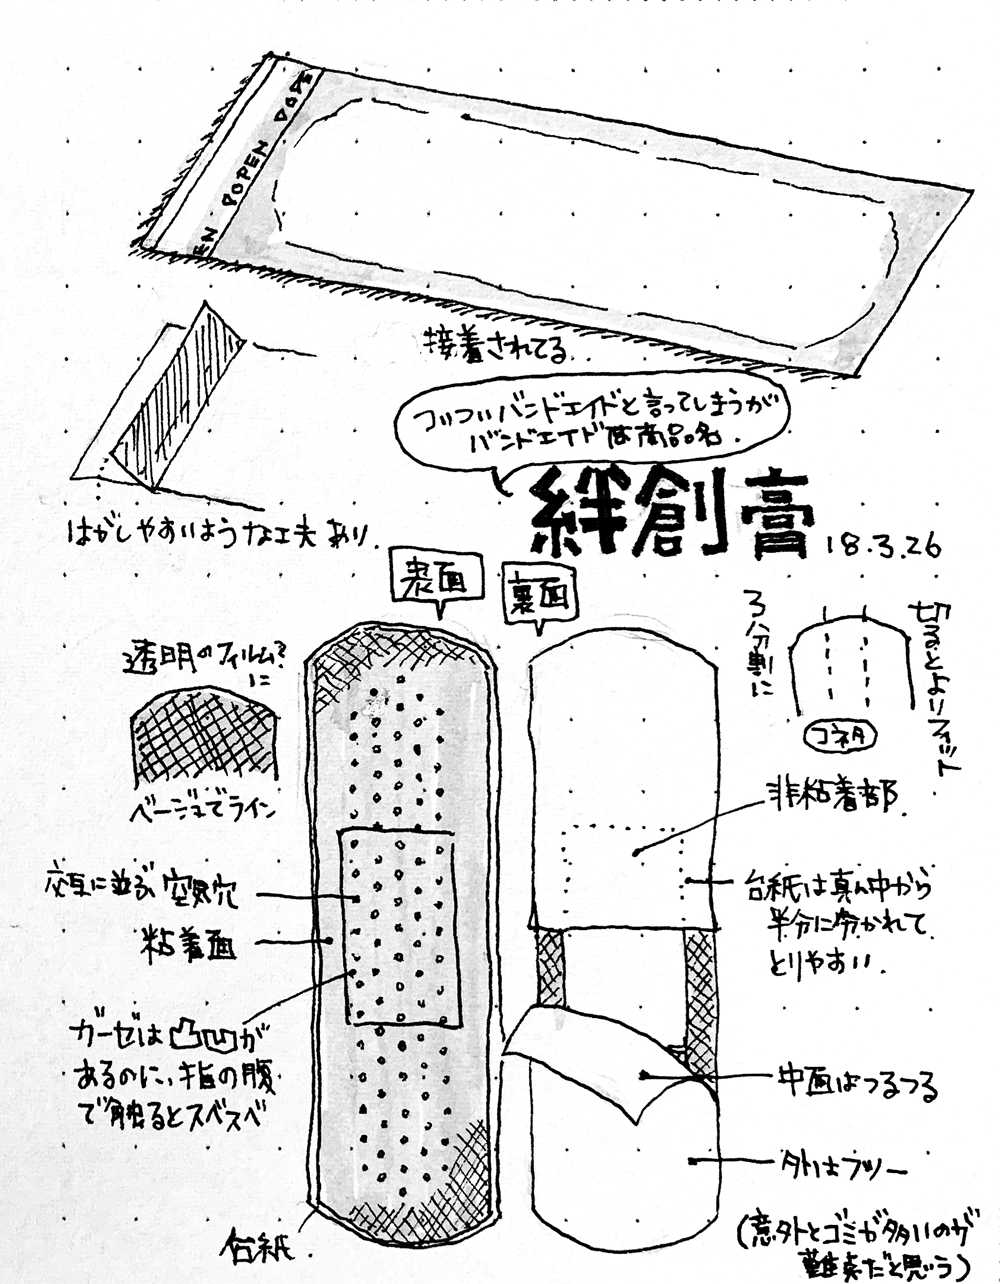 OPE
OPEN
EN
接着されてる..
ついついバンドエイドと言ってしまうが
バンドエイドは商品名.
絆創膏
18.3.26
はがしやすいような工夫あり.
表面
裏面
透明のフィルム?
に
ベージュでライン
3分割に
切るとよりフィット
コネタ
非粘着部.
交互に並ぶ空気穴
台紙は真ん中から
半分に分かれて
とりやすい.
粘着面
ガーゼは凸凹が
あるのに、指の腹
で触るとスベスベ
中面はつるつる
外はフツー
台紙.
(意外とゴミが多いのが
難点だと思う)